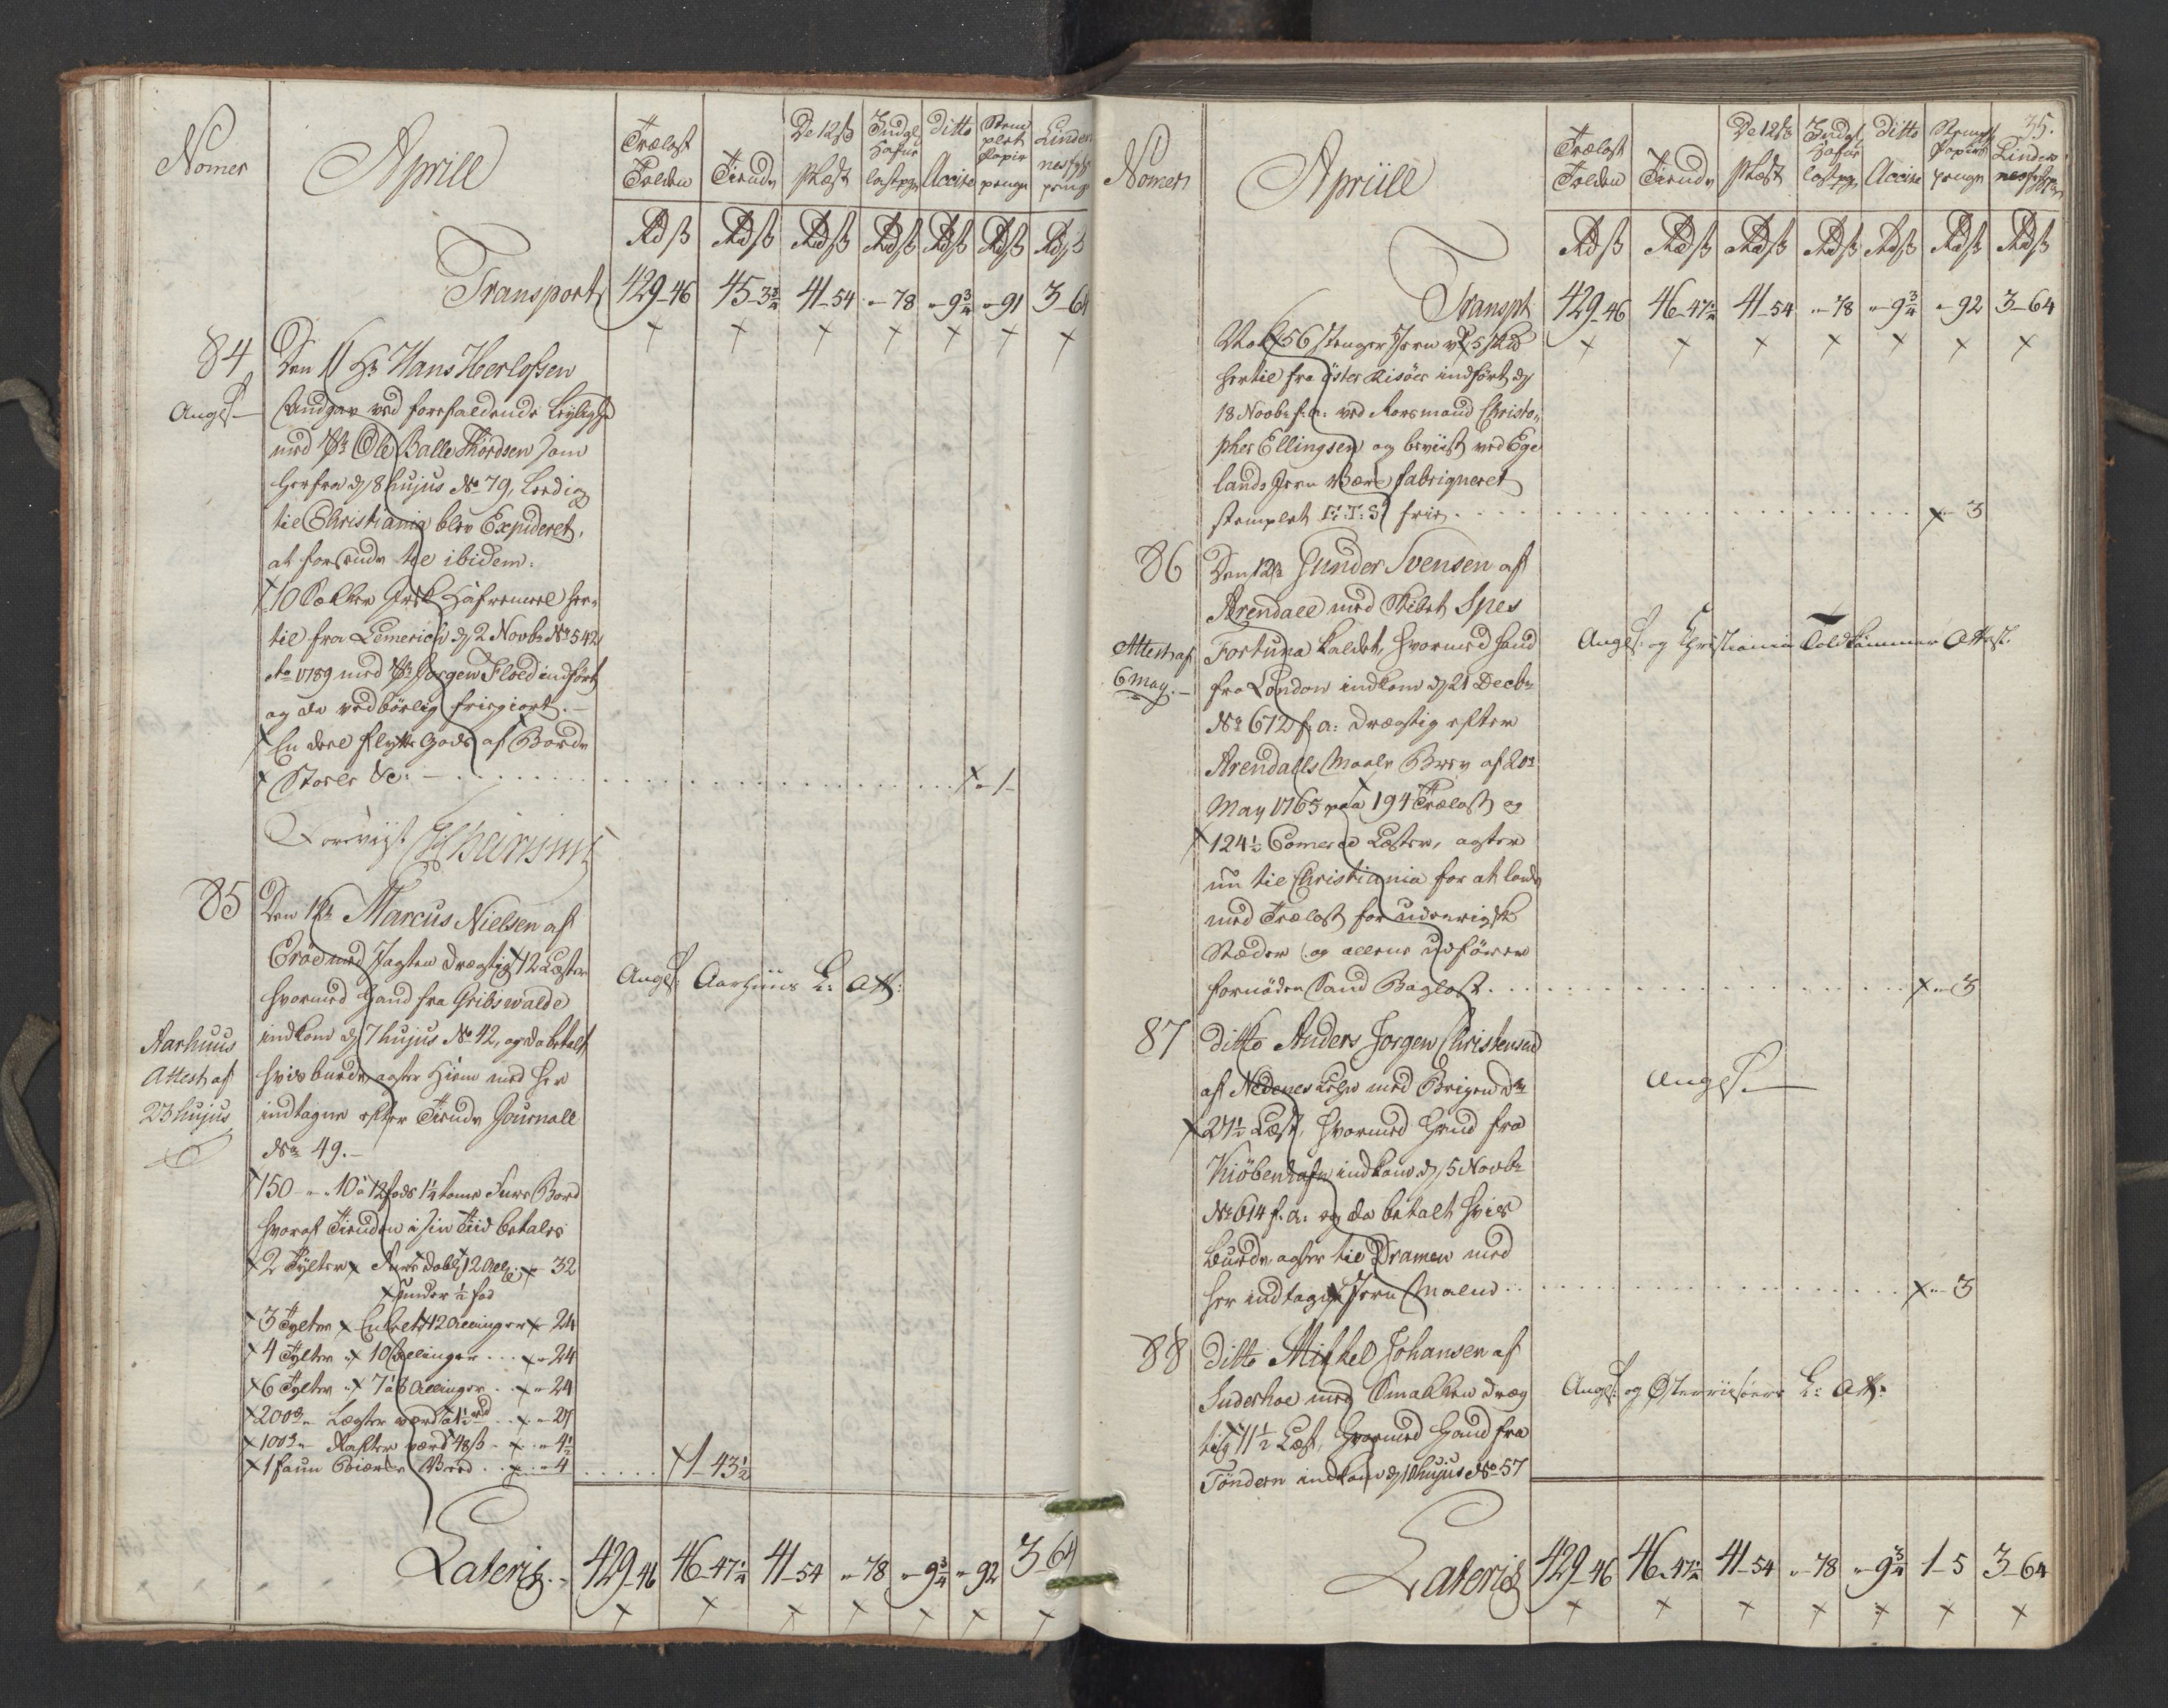 Nomer
Aprill
Trælast Tolden
Tiende
De 12 ß pLæst
Indgl Hafne lastpge
ditto Accise
Stemplet Papir penge
Lindesnes fyhr penge
Rd ß Rd ß Rd ß Rd ß Rd ß Rd ß Rd ß
Transport 429-46 45-3¾ 41-54 "-78 "-9¾ "-91 3-64
84
Den 11 Hr Hans Herlofsen
Angl.
Andgav ved forefaldende Leylighed
med Skr Ole Balle Thordsen som
herfra d. 8 hujus No 79, Lerdig
til Christiania blev Expideret,
at forsende til ibidem:
10 Sækker Jrsk Hafremeel her-
til fra Lemerich d. 2 Novbr No 542
Ao 1789 med Skr Jørgen Floed indført
og da vedbørlig frigiort.
En deel flytte Gods af Borde
Stoele &c: "-1-
Foreviist
85
Den 12 Marcus Nielsen af
Eröe med Jagten drægtig 12 Læster
hvormed Hand fra Gribswalde
indkom d. 7 hujus No 42, og da betalt
hvis burde, agter Hiem med her
indtagne efter Tiende Journall
No 49.
Angl. Aarhuus T: Att:
Aarhuus
Attest af
23 hujus
150 - " 10 a 12 fods 1¼ toms Furre Bord
hvoraf Tienden i sin Tiid betales
2 Tylter Furre dobl 12 All: " 32
under ½ fod
3 Tylter Enkelt 12 Allinger " 24
4 Tylter " 10 Allinger " 24
6 Tylter " 7 a 8 Allinger " 24
200de Lægter værd a 1½ rd " 27
100de Rafter værd 48 ß " 4½
1 faun Birke Veed " 4 1-43½
Lateris 429-46 46-47¼ 41-54 "-78 "-9¾ "-92 3-64
35.
Nomer
Apriill
Trælast Tolden
Tiende
De 12 ß pLæst
Indgl Hafne lastpge
ditto Accise
Stempl Papirs penge
Lindesnes fyhrpge
Rd ß Rd ß Rd ß Rd ß Rd ß Rd ß Rd ß
Transpt 429-46 46-47¼ 41-54 "-78 "-9¾ "-92 3-64
56 Stenger Jern 5 Skd
hertil fra öster Risöer indført d.
18 Novbr f: a: ved Rorsmand Christo-
pher Ellingsen og beviist ved Ege
lands Jern Værk fabriqueret
stemplet I: T: S: frie "-3
86
Den 12 Gunder Svensen af
Arendall med Skibet Spes
Fortuna kaldet, hvormed hand
fra London indkom d. 21 Decbr
No 672 f: a: drægtig efter
Arendalls Maale Brev af 20de
May 1765 paa 194 Trælast og
124½ Comerce Læster, agter
nu til Christiania for at lade
med Trælast for udenrigske
Stæder og allene udfører
fornöden Sand Baglast "-3
Attest af
6 may.
Angl. og Christiania Toldkammer Attest.
87
ditto Anders Jorgen Christensen
af Nedenes Lehn med Brigen
27½ Læst, hvormed Hand fra
Kiöbenhafn indkom d. 5 Novbr
No 614 f: a: og da betalt hvis
burde, agter til Dramen med
her indtagen Jern Malm "-3
Angl.
88
ditto Michel Johansen af
Suderhoe med Smakken dræg
tig 11½ Læst, hvormed Hand fra
Töndern indkom d. 10 hujus No 57
Angl. og Österriisöers T: Att:
Lateris 429-46 46-47¼ 41-54 "-78 "-9¾ 1-5 3-64